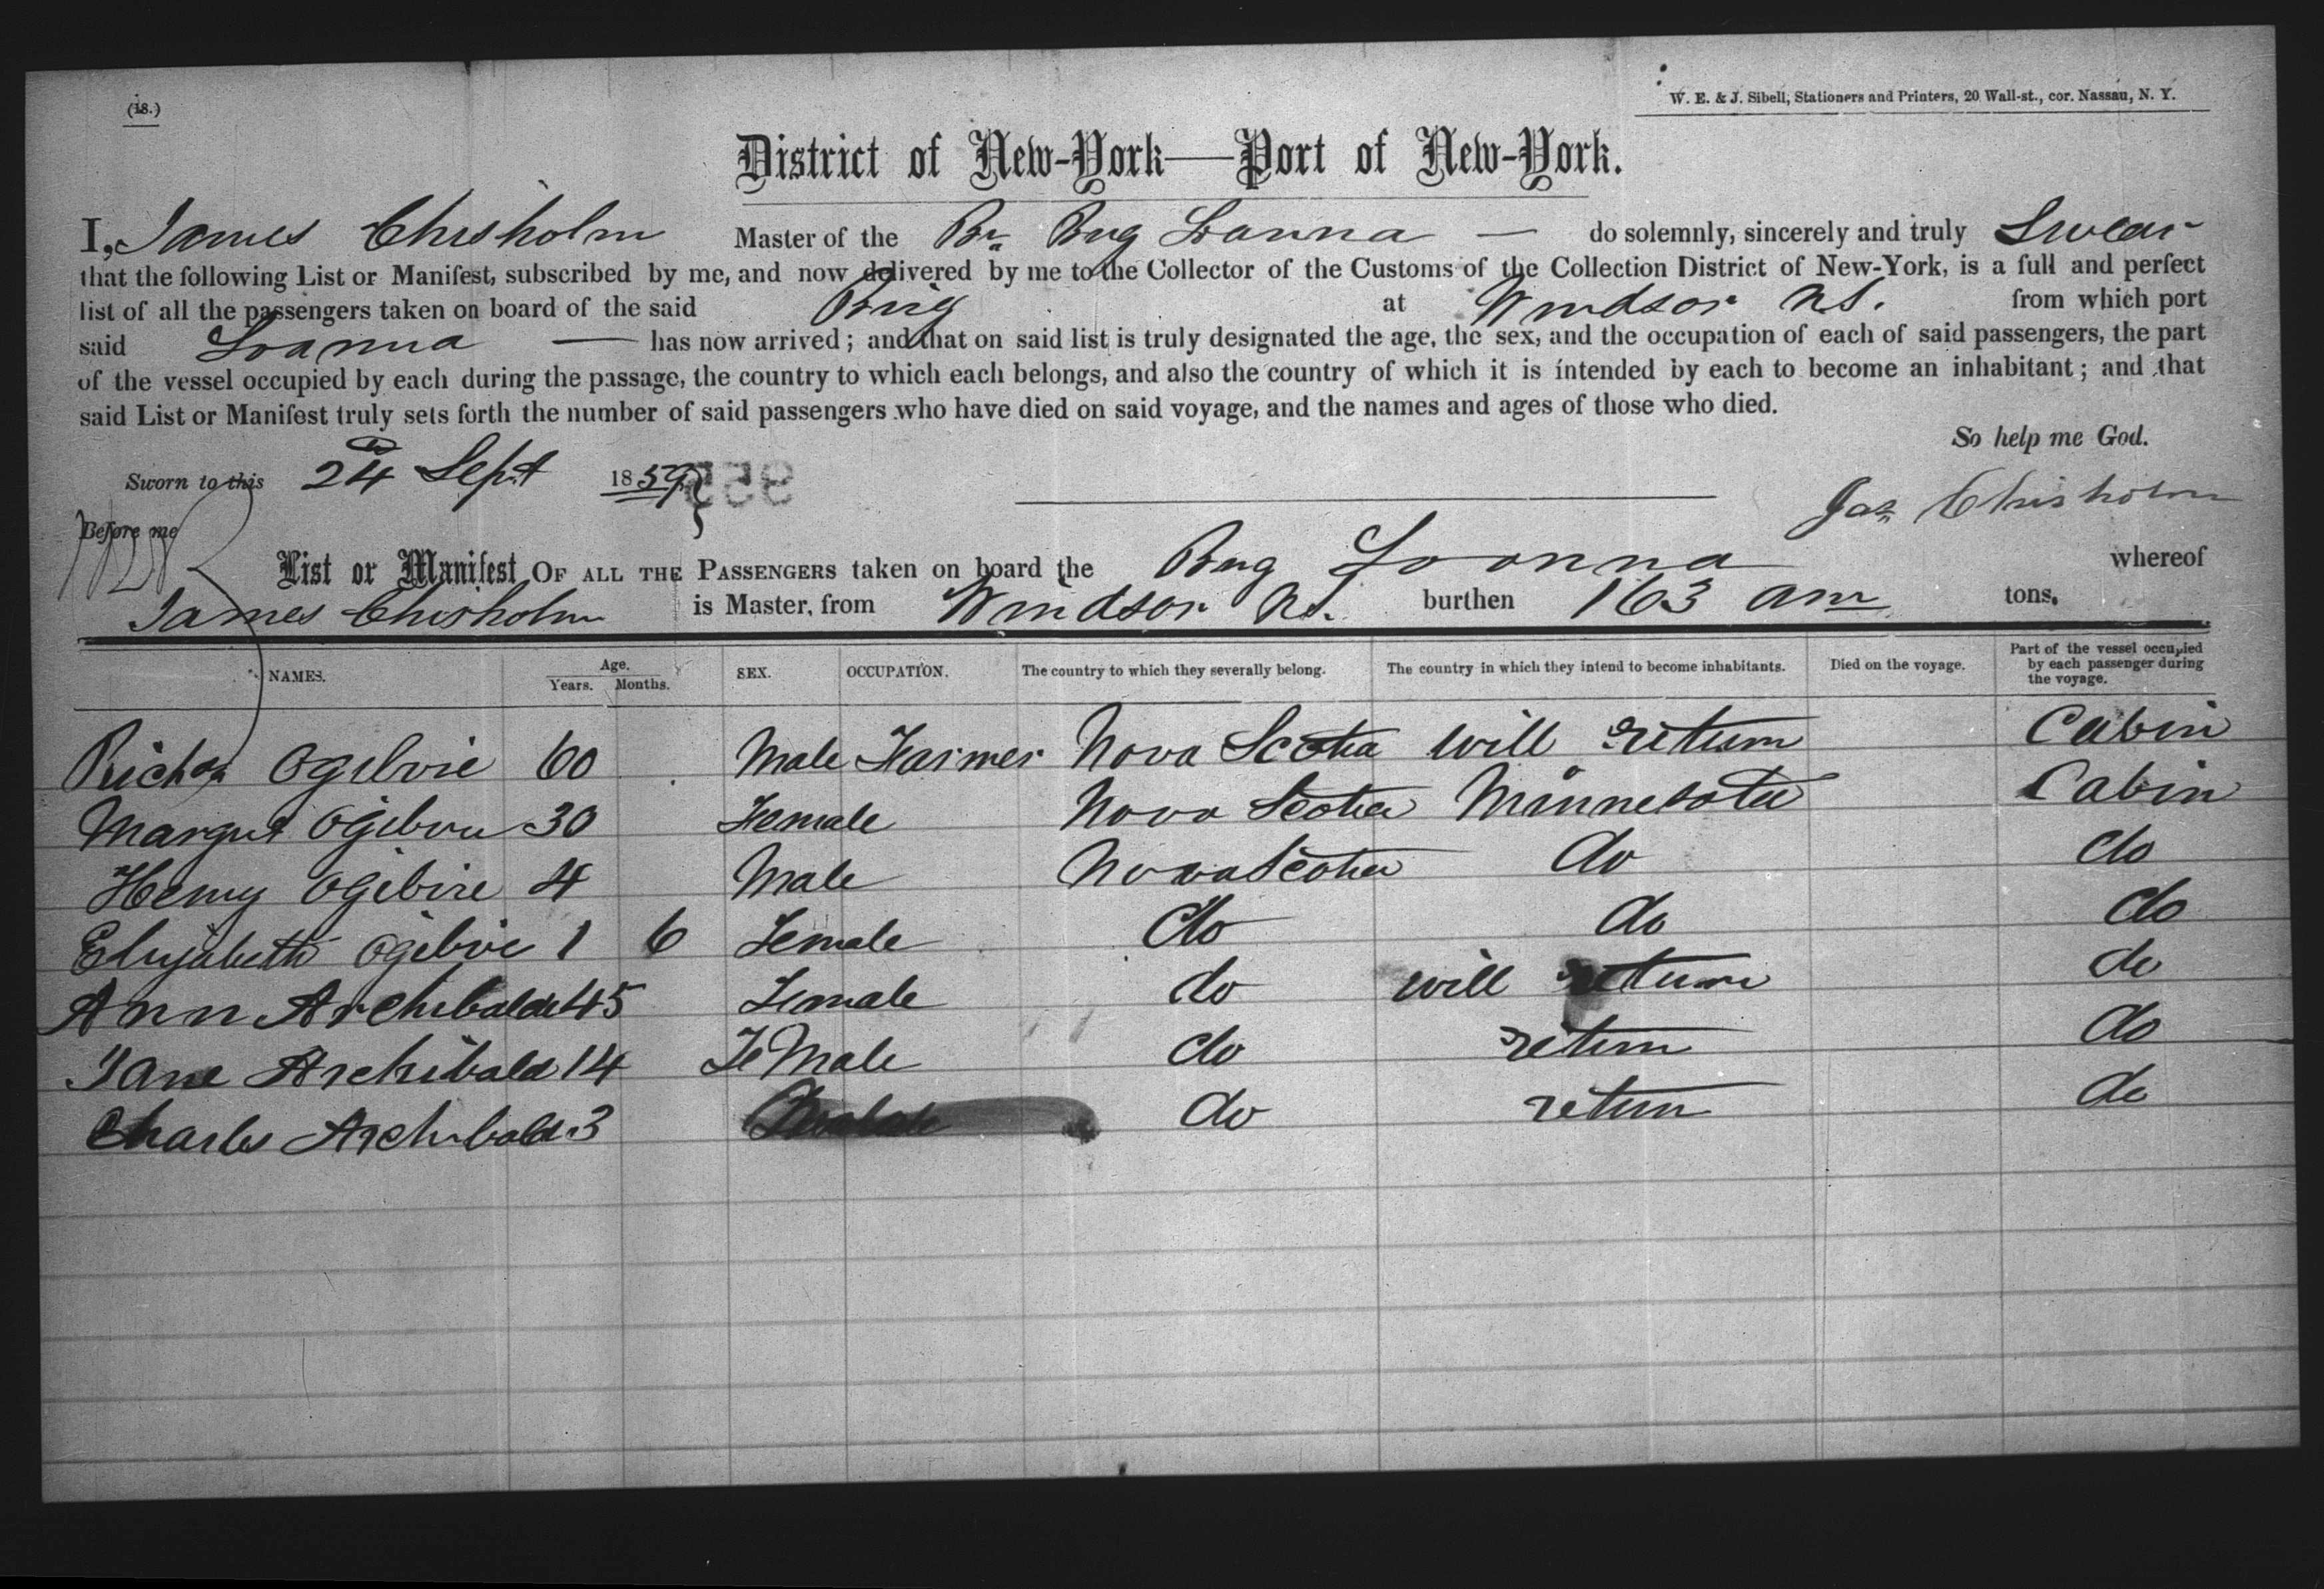 (18.)
W. E. & J. Sibell, Stationers and Printers, 20 Wall-st., cor. Nassau, N. Y.
District of New-York—Port of New-York.
I, James Chisholm Master of the Br Brig Loanna — do solemnly, sincerely and truly Swear
that the following List or Manifest, subscribed by me, and now delivered by me to the Collector of the Customs of the Collection District of New-York, is a full and perfect
list of all the passengers taken on board of the said Brig at Windsor NS. from which port
said Loanna — has now arrived; and that on said list is truly designated the age, the sex, and the occupation of each of said passengers, the part
of the vessel occupied by each during the passage, the country to which each belongs, and also the country of which it is intended by each to become an inhabitant; and that
said List or Manifest truly sets forth the number of said passengers who have died on said voyage, and the names and ages of those who died.
So help me God.
Sworn to this 24 Sept 1859
Jas Chisholm
Before me
List or Manifest OF ALL THE PASSENGERS taken on board the Brig Loanna whereof
James Chisholm is Master, from Windsor NS. burthen 163 am tons.
NAMES. Age. Years. Months. SEX. OCCUPATION. The country to which they severally belong. The country in which they intend to become inhabitants. Died on the voyage. Part of the vessel occupied by each passenger during the voyage.
Richd Ogilvie 60 Male Farmer Nova Scotia will return Cabin
Margret Ogilvie 30 Female Nova Scotia Minnesota Cabin
Henry Ogilvie 4 Male Nova Scotia do do
Elizabeth Ogilvie 1 6 Female do do do
Ann Archibald 45 Female do will return do
Jane Archibald 14 FeMale do return do
Charles Archibald 3 do return do